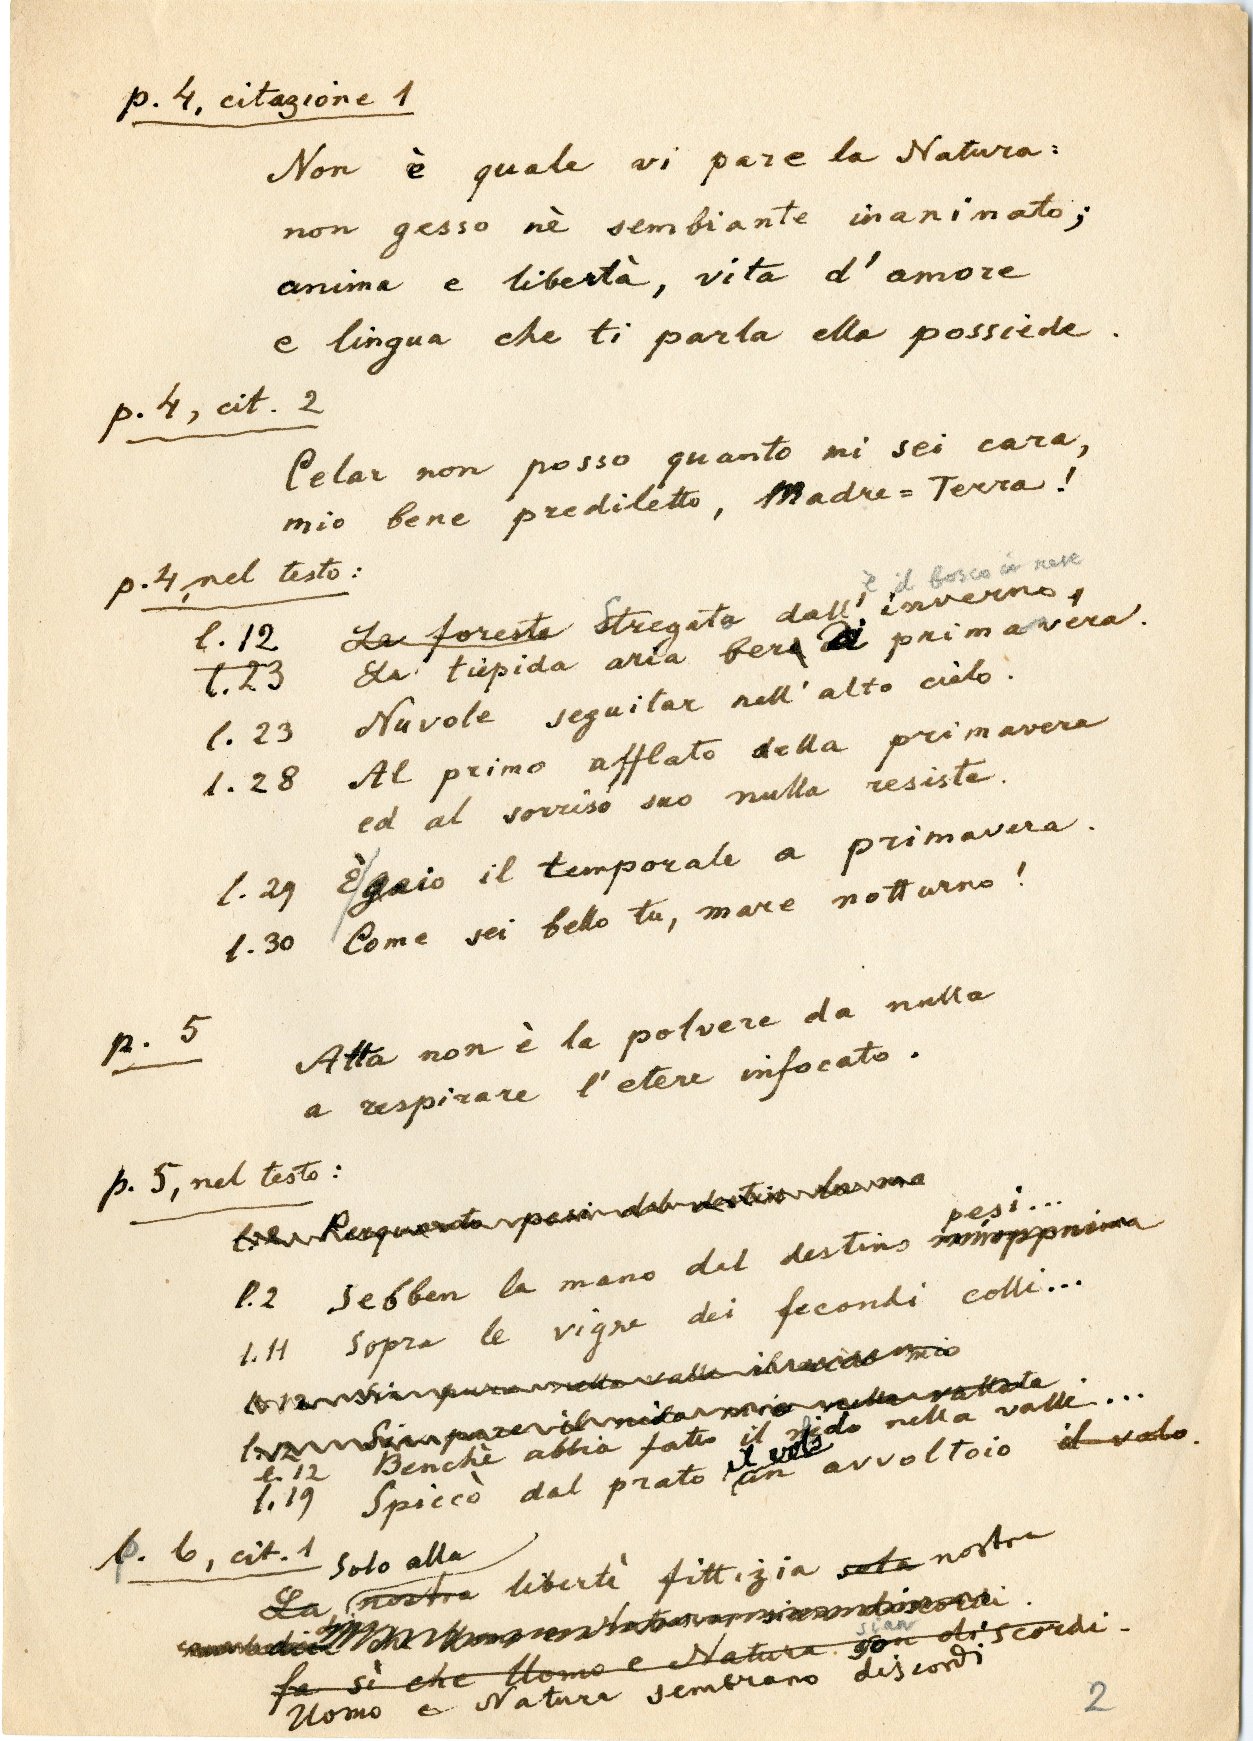 p. 4, citazione 1
Non è quale vi pare la Natura:
non gesso nè sembiante inanimato;
anima e libertà, vita d'amore
e lingua che ti parla ella possiede.
p. 4, cit. 2
Celar non posso quanto mi sei cara,
mio bene prediletto, Madre=Terra!
p. 4, nel testo:
è il bosco in neve
l. 12 La foresta Stregata dall'inverno,
l. 23 La tiepida aria bere di primavera.
l. 23 Nuvole seguitar nell'alto cielo.
l. 28 Al primo afflato della primavera
ed al sorriso suo nulla resiste.
l. 29 È gaio il temporale a primavera.
l. 30 Come sei bello tu, mare notturno!
p. 5 Atta non è la polvere da nulla
a respirare l'etere infocato.
p. 5, nel testo:
l. 2 Perquanto pesi del destin la ma
pesi...
l. 2 Sebben la mano del destino
l. 11 Sopra le vigne dei fecondi colli...
l. 12 Sia pure nella valle il mio
l. 12 Sia pure il nido mio nella vallata
l. 12 Benchè abbia fatto il nido nella valle...
il volo
l. 19 Spiccò dal prato un avvoltoio il volo.
p. 6, cit. 1 Solo alla
La nostra libertè fittizia sola nostra
discordi.
sian
fa sì che Uomo e Natura son discordi.
Uomo e Natura sembrano discordi
2